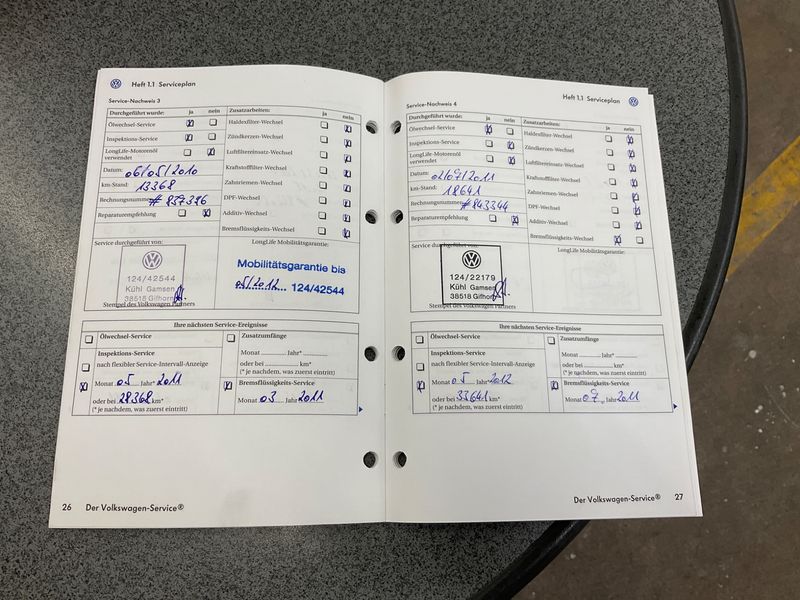 Heft 1.1 Serviceplan
Service-Nachweis 3
Durchgeführt wurde: ja nein
Ölwechsel-Service
Inspektions-Service
LongLife-Motorenöl verwendet
Datum: 06/05/2010
km-Stand: 13368
Rechnungsnummer # 837396
Reparaturempfehlung
Zusatzarbeiten: ja nein
Haldexfilter-Wechsel
Zündkerzen-Wechsel
Luftfiltereinsatz-Wechsel
Kraftstofffilter-Wechsel
Zahnriemen-Wechsel
DPF-Wechsel
Additiv-Wechsel
Bremsflüssigkeits-Wechsel
Service durchgeführt von:
124/42544
Kühl Gamsen
38518 Gifhorn
Stempel des Volkswagen Partners
LongLife Mobilitätsgarantie:
Mobilitätsgarantie bis
05/2012 124/42544
Ihre nächsten Service-Ereignisse
Ölwechsel-Service
Inspektions-Service
nach flexibler Service-Intervall-Anzeige
Monat 05 Jahr* 2011
oder bei 28368 km*
(* je nachdem, was zuerst eintritt)
Zusatzumfänge
Monat Jahr*
oder bei km*
(* je nachdem, was zuerst eintritt)
Bremsflüssigkeits-Service
Monat 03 Jahr 2011
26 Der Volkswagen-Service®
Heft 1.1 Serviceplan
Service-Nachweis 4
Durchgeführt wurde: ja nein
Ölwechsel-Service
Inspektions-Service
LongLife-Motorenöl verwendet
Datum: 04/07/2011
km-Stand: 18641
Rechnungsnummer # 843344
Reparaturempfehlung
Zusatzarbeiten: ja nein
Haldexfilter-Wechsel
Zündkerzen-Wechsel
Luftfiltereinsatz-Wechsel
Kraftstofffilter-Wechsel
Zahnriemen-Wechsel
DPF-Wechsel
Additiv-Wechsel
Bremsflüssigkeits-Wechsel
Service durchgeführt von:
124/22179
Kühl Gamsen
38518 Gifhorn
Stempel des Volkswagen Partners
LongLife Mobilitätsgarantie:
Ihre nächsten Service-Ereignisse
Ölwechsel-Service
Inspektions-Service
nach flexibler Service-Intervall-Anzeige
Monat 05 Jahr* 2012
oder bei 33641 km*
(* je nachdem, was zuerst eintritt)
Zusatzumfänge
Monat Jahr*
oder bei km*
(* je nachdem, was zuerst eintritt)
Bremsflüssigkeits-Service
Monat 07 Jahr 2011
Der Volkswagen-Service® 27